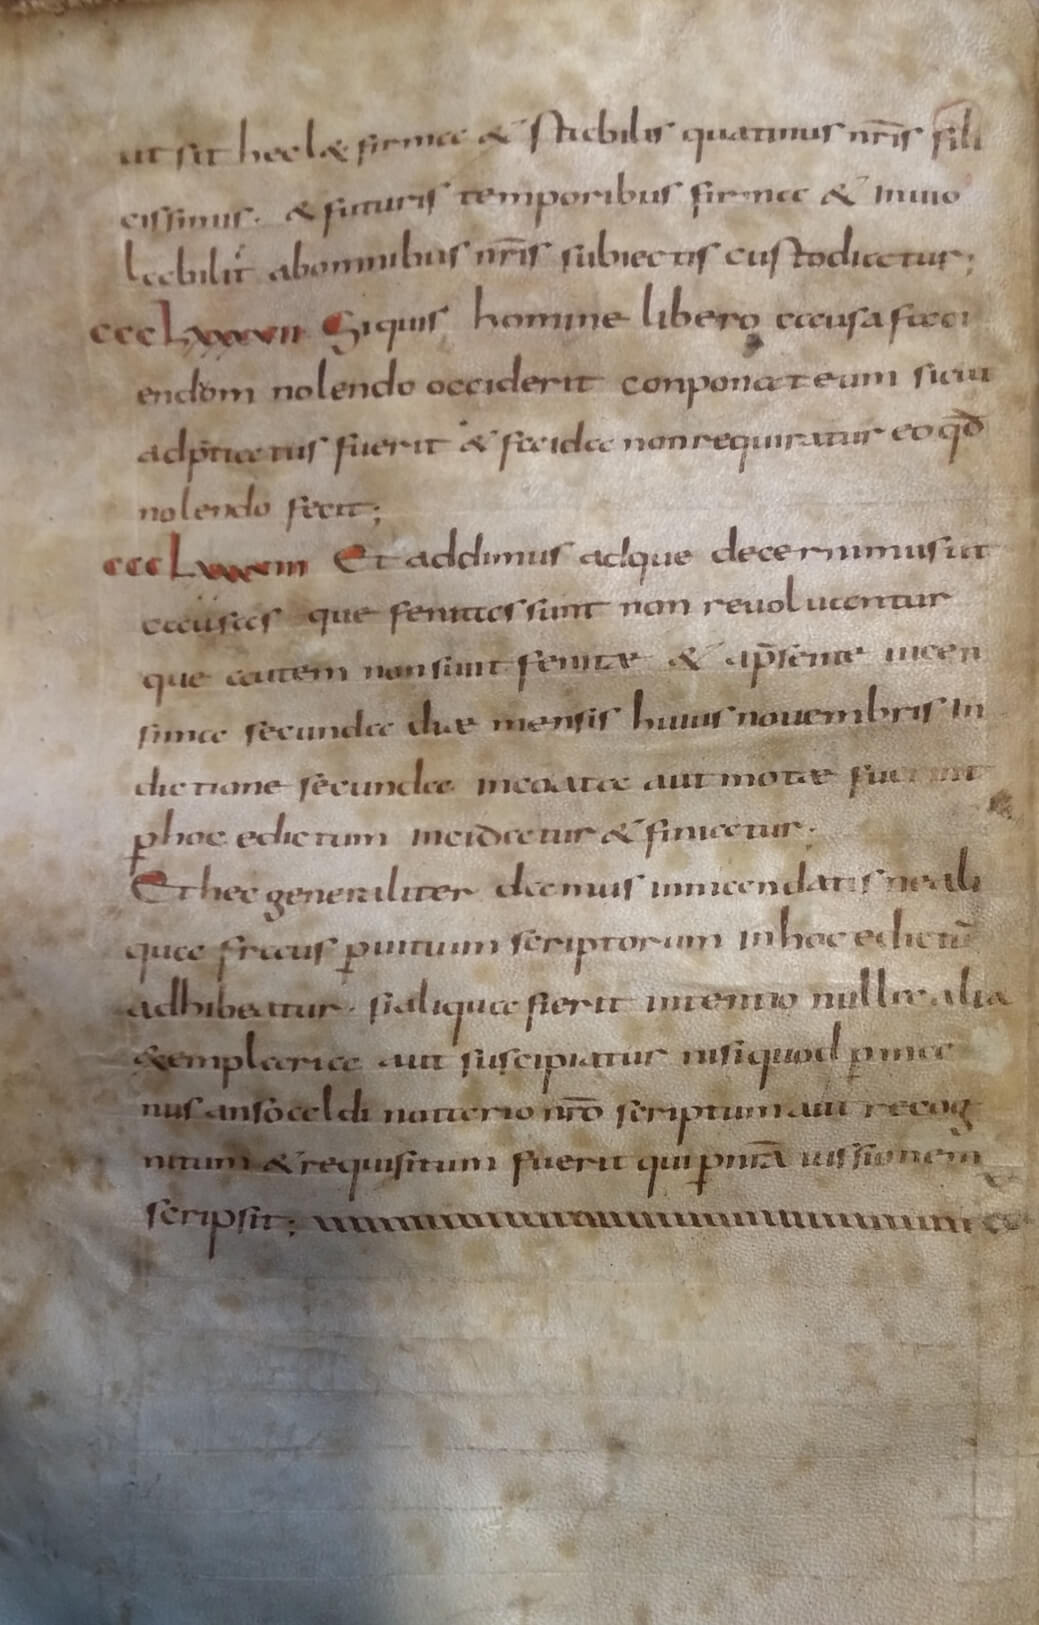 ut sit hec lex firma & stabilis quatinus nr̄is feli
cissimis · & futuris temporibus firma & inuio
labilit̄ ab omnibus nr̄is subiectis custodiatur;
ccclxxxvii Si quis homine libero casu faci
endom nolendo occiderit conponat eum sicut
adp̄tiatus fuerit & faida non requiratur eo qđ
nolendo fecit;
ccclxxxviii Et addimus adque decernimus ut
causas que fenitas sunt non reuoluantur
que autem non sunt fenitæ & a p̄sente uicen
sima secunda diæ mensis huius nouembris in
dictione secunda incoatæ aut motæ fuerint
p̱ hoc edictum incidatur & finiatur ·
Et hec generaliter damus in mandatis ne ali
qua fraus p̱ uitium scriptorum in hoc edictū
adhibeatur · si aliqua fierit intentio nulla alia
exemplaria aut suscipiatur nisi quod p̱ ma
nus ansoaldi notario nr̄o scriptum aut recog
nitum & requisitum fuerit qui p̱ nr̄ā iussionem
scripsit;